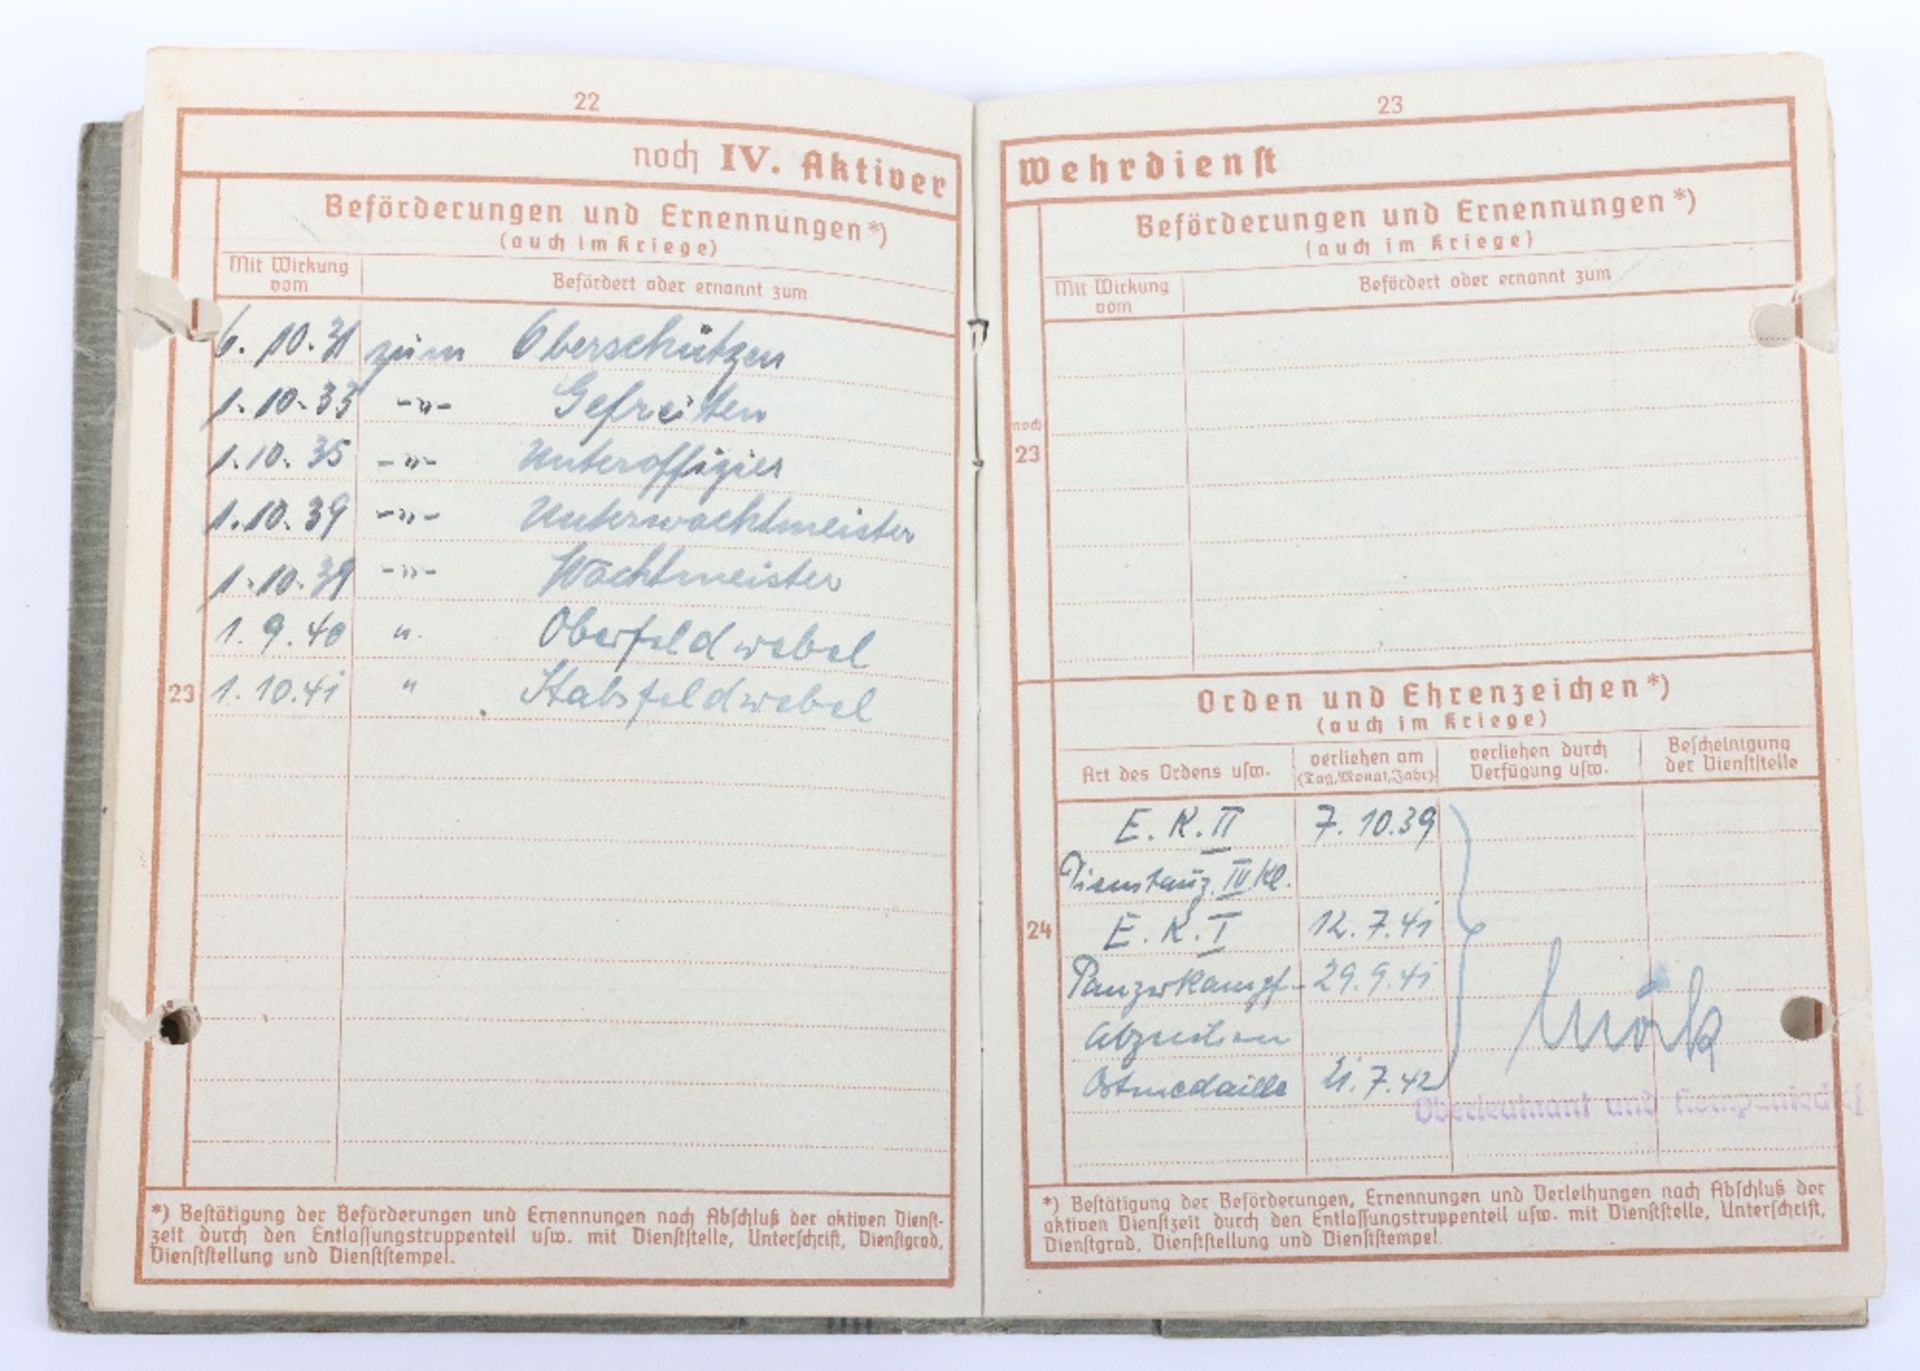 22
noch IV. Aktiver
Beförderungen und Ernennungen*)
(auch im Kriege)
Mit Wirkung vom
Befördert oder ernannt zum
6. 10. 31 zum Oberschützen
1. 10. 33 -"- Gefreiten
1. 10. 35 -"- Unteroffizier
1. 10. 39 -"- Unterwachtmeister
1. 10. 39 -"- Wachtmeister
1. 9. 40 " Oberfeldwebel
23 1. 10. 41 " Stabsfeldwebel
*) Bestätigung der Beförderungen und Ernennungen nach Abschluß der aktiven Dienst-
zeit durch den Entlassungstruppenteil usw. mit Dienststelle, Unterschrift, Dienstgrad,
Dienststellung und Dienststempel.
23
Wehrdienst
Beförderungen und Ernennungen*)
(auch im Kriege)
Mit Wirkung vom
Befördert oder ernannt zum
noch
23
Orden und Ehrenzeichen*)
(auch im Kriege)
Art des Ordens usw.
verliehen am (Tag, Monat, Jahr)
verliehen durch Verfügung usw.
Bescheinigung der Dienststelle
E. K. II 7. 10. 39
Dienstausz. IV Kl.
24 E. K. I 12. 7. 41
Panzerkampf- 29. 9. 41
abzeichen
Ostmedaille 7. 42
Oberleutnant und Kompaniechef
*) Bestätigung der Beförderungen, Ernennungen und Verleihungen nach Abschluß der
aktiven Dienstzeit durch den Entlassungstruppenteil usw. mit Dienststelle, Unterschrift,
Dienstgrad, Dienststellung und Dienststempel.